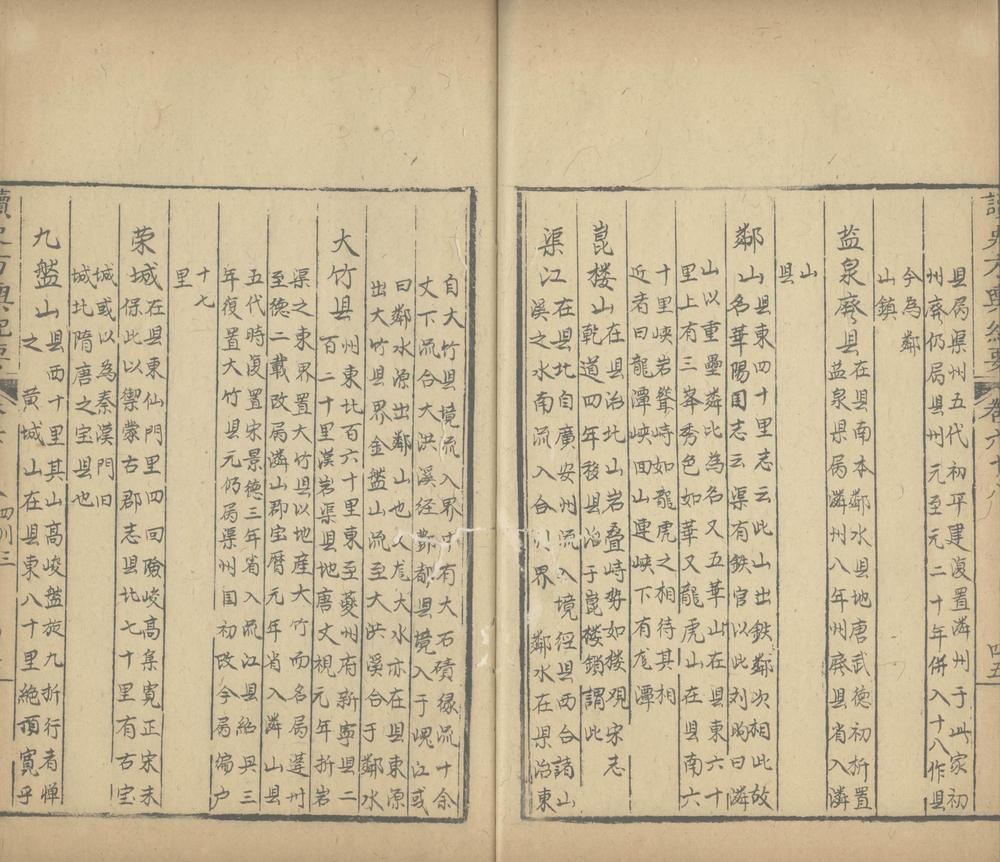 县屬渠州五代初平建復置潾州于此宋初
州廢仍屬县州元至元二十年併入十八作县
今為鄰
山鎮
益泉廢县在县南本鄰水县地唐武德初析置
益泉県屬潾州八年州廢县省入潾
山
县
鄰山县東四十里志云此山出鉄鄰次相比故
名華陽国志云渠有鉄官以此刘昫曰潾
山以重疊潾比為名又五華山在县東六十
里上有三峯秀色如華又龍虎山在县南六
十里峡岩聳峙如龍虎之相待其相
近者曰龍潭峡田山連峡下有龙潭
崑楼山在县治北山岩叠峙势如楼观宋志
乾道四年移县治于崑楼鎖謂此
渠江在县北自廣安州流入境经县西合諸山
溪之水南流入合州界 鄰水在県治東
卷六十八
四五
自大竹县境流入界中有大石磧缘流十余
丈下流合大洪溪经鄷都县境入于岷江或
曰鄰水源出鄰山也又龙大水亦在县東源
出大竹县界金盤山流至大洪溪合于鄰水
大竹县州東北百六十里東至夔州府新寧县二
百二十里漢宕渠县地唐文視元年折宕
渠之東界置大竹县以地産大竹而名屬蓬州
至德二載改屬潾山郡宝曆元年省入潾山县
五代時復置宋景德三年省入流江县紹興三
年復置大竹县元仍屬渠州国初改今屬编户
十七
里
荣城在县東仙門里四回險峻高集寬正宋末
保此以禦蒙古郡志县北七十里有古宝
城或以為秦漢門旧
城北隋唐之宝县也
九盤山县西十里其山高峻盤旋九折行者惮
之 黄城山在县東八十里絶頂寬乎